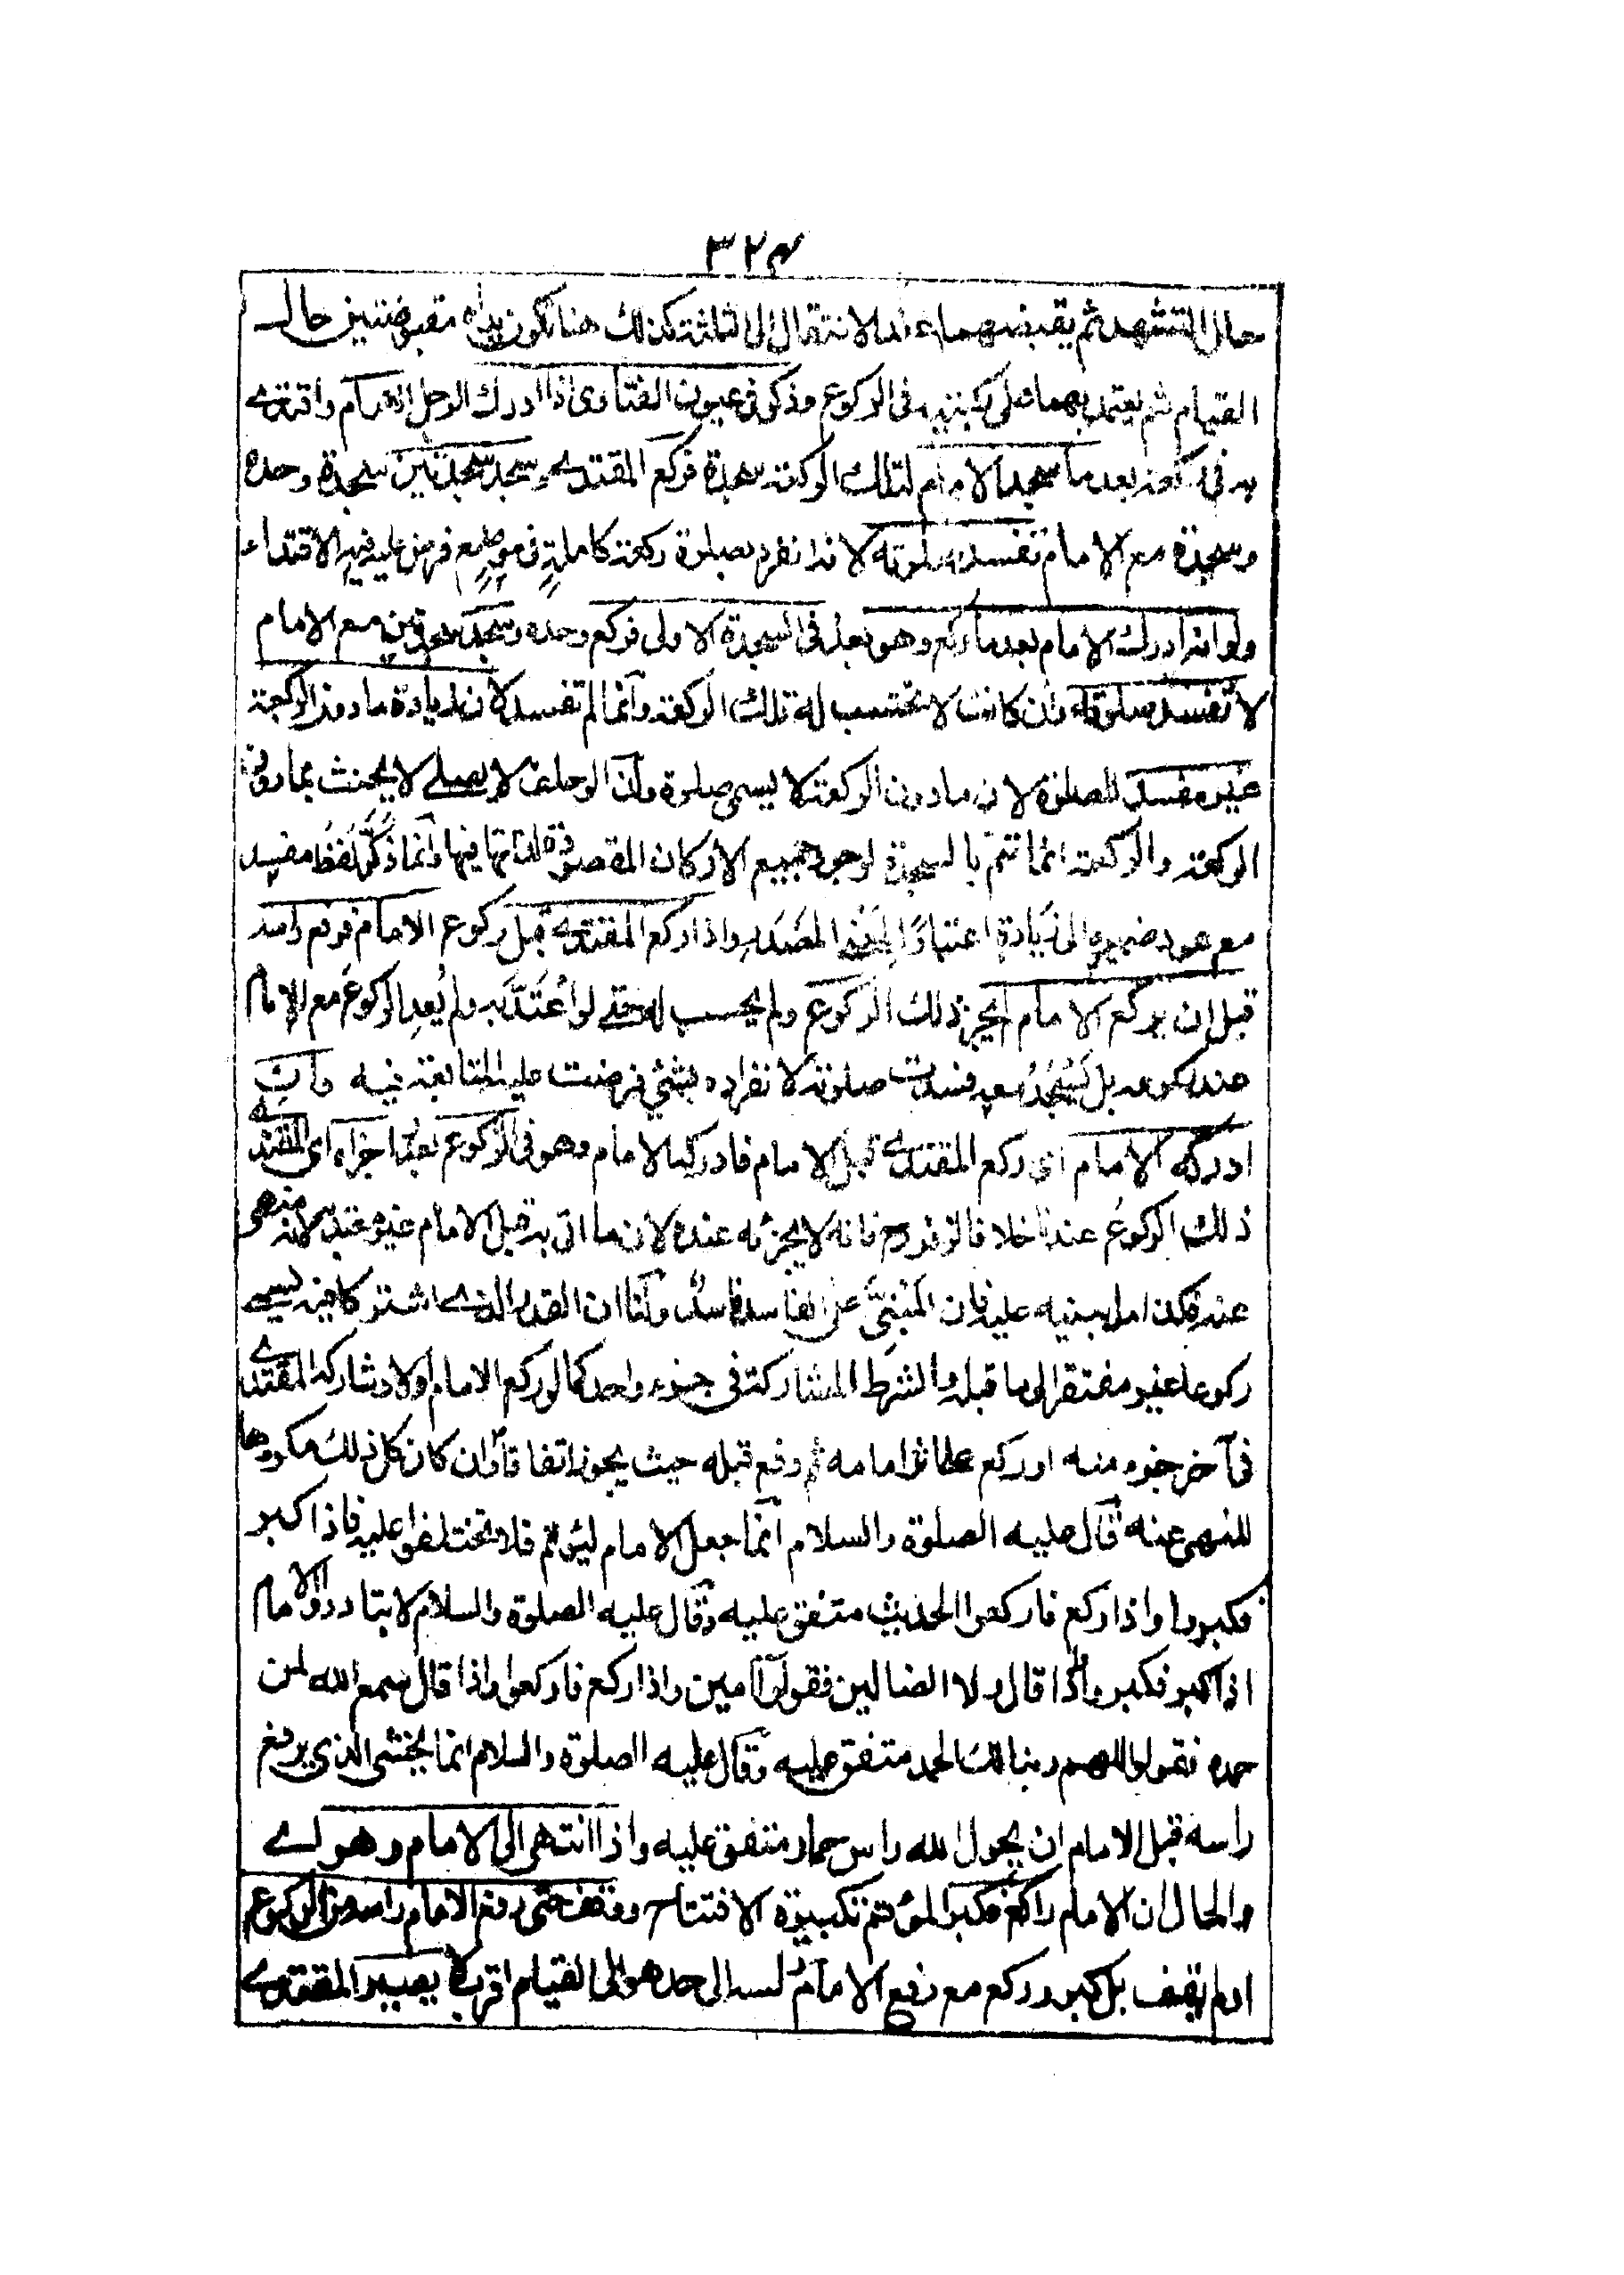 ٣٢٤
حال التشهد ثم يقبضهما عند الانتقال الى الثالثة كذلك هنا تكون يداه مقبوضتين حال
القيام ثم يعتمد بهما على ركبتيه فى الركوع وذكر فى عيون الفتاوى اذا ادرك الرجل الامام واقتدى
به فى ركعة بعد ما سجد الامام لتلك الركعة سجدة فركع المقتدى وسجد سجدتين سجدة وحده
وسجدة مع الامام تفسد صلوته لانه انفرد بصلوة ركعة كاملة فى موضع فرض عليه فيه الاقتداء
ولو انه ادرك الامام بعد ما ركع وهو بعد فى السجدة الاولى فركع وحده وسجد سجدتين مع الامام
لا تفسد صلوته وان كانت لا تحتسب له تلك الركعة وانما لم تفسد لان زيادة ما دون الركعة
غير مفسد للصلوة لان ما دون الركعة لا يسمى صلوة ولان الو حلف لا يصلى لا يحنث بما دون
الركعة والركعة انما تتم بالسجدة لوجود جميع الاركان المقصودة لذاتها فيها وانما ذكر لفظ مفسد
مع عود ضميره الى زيادة اعتبارا المصدر واذا ركع المقتدى قبل ركوع الامام فرفع راسه
قبل ان يركع الامام لم يجز ذلك الركوع ولم يحسب له حتى لو اعتد به ولم يعد الركوع مع الامام
عند ركوعه بل يسجد معه فسدت صلوته لانفراده بشئ فرضت عليه المتابعة فيه وان
ادركه الامام اى ركع المقتدى قبل الامام فادركه الامام وهو فى الركوع بعد اجزاه اى المقتدى
ذلك الركوع عندنا خلافا لزفر رح فانه لا يجزئه عنده لان ما اتى به قبل الامام غير معتد به لانه منهى
عنه فكذا ما يبنيه عليه فان المبنى على الفاسد فاسد ولنا ان القدر الذى اشتركا فيه يسمى
ركوعا غير مفتقر الى ما قبله والشرط المشاركة فى جزء واحد كما لو ركع الامام اولا وشاركه المقتدى
فى آخر جزء منه او ركع على اثر امامه ثم رفع قبله حيث يجوز اتفاقا وان كان كل ذلك مكروها
للنهى عنه قال عليه الصلوة والسلام انما جعل الامام ليؤتم فلا تختلفوا عليه فاذا كبر
فكبروا واذا ركع فاركعوا الحديث متفق عليه وقال عليه الصلوة والسلام لا تبادروا الامام
اذا كبر فكبروا واذا قال ولا الضالين فقولوا آمين واذا ركع فاركعوا واذا قال سمع الله لمن
حمده فقولوا اللهم ربنا لك الحمد متفق عليه وقال عليه الصلوة والسلام انما يخشى الذى يرفع
راسه قبل الامام ان يحول الله راس حمار متفق عليه واذا انتهى الى الامام وهو اى
والحال ان الامام راكع فكبر المؤتم تكبيرة الافتتاح ووقف حتى رفع الامام راسه من الركوع
او لم يقف بل كبر وركع مع رفع الامام راسه الى حد هو الى القيام اقرب لا يصير المقتدى